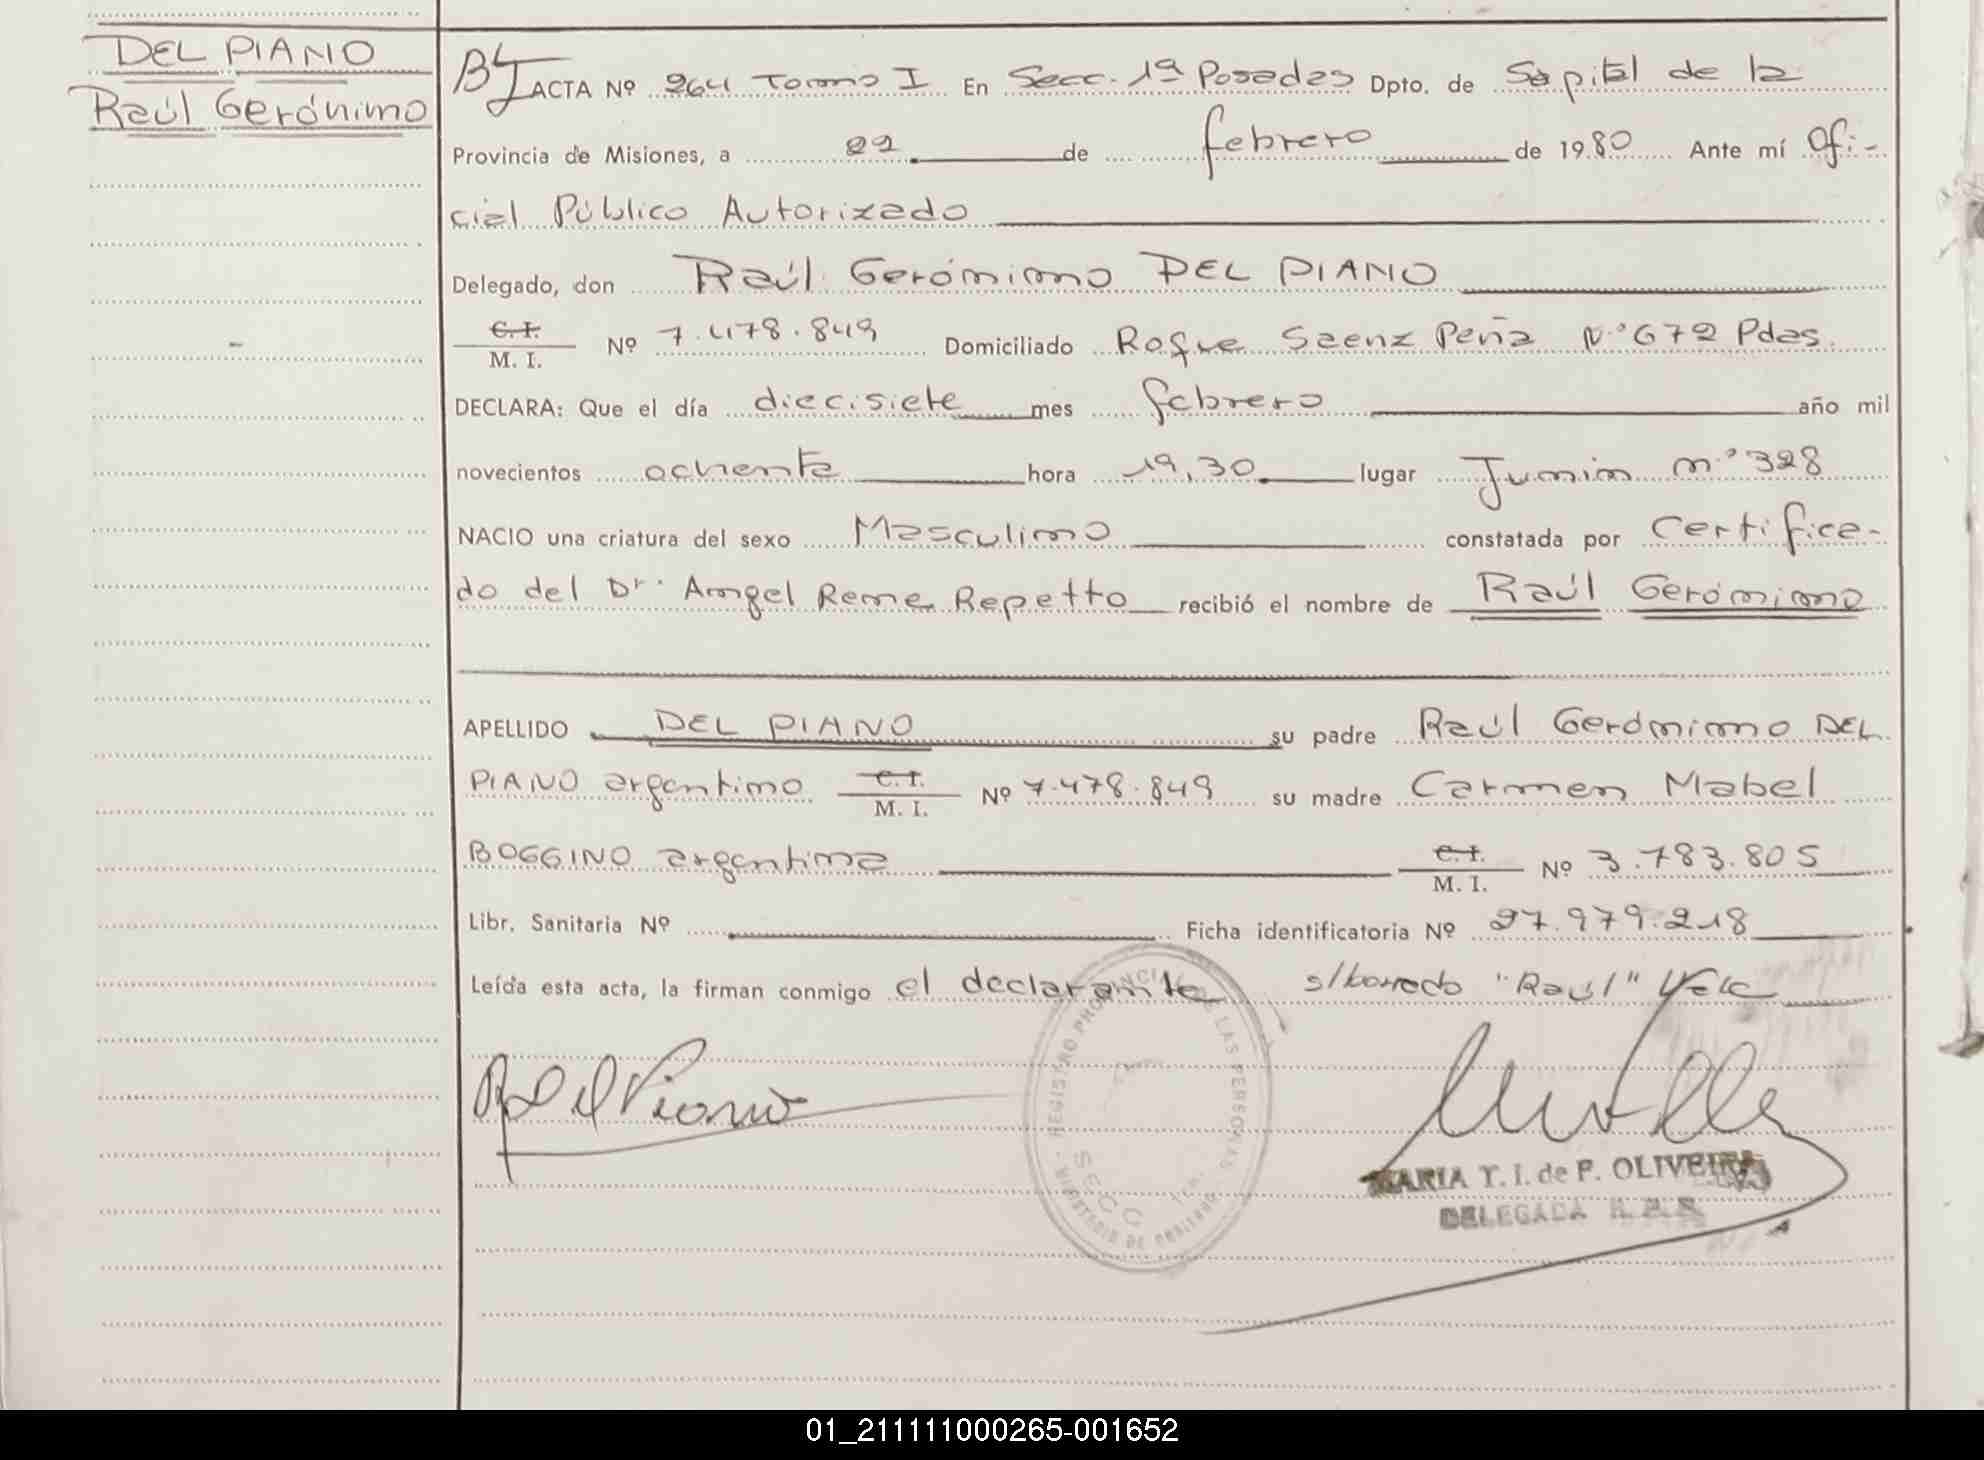 DEL PIANO
Raúl Gerónimo
ACTA Nº 264 Tomo I En Secc. 1ª Posadas Dpto. de Capital de la
Provincia de Misiones, a 22 de febrero de 1980 Ante mí Ofi-
cial Público Autorizado
Delegado, don Raúl Gerónimo DEL PIANO
C.I. M. I. Nº 7.478.849 Domiciliado Roque Saenz Peña Nº 672 Pdas.
DECLARA: Que el día diecisiete mes febrero año mil
novecientos ochenta hora 19,30 lugar Junin nº 328
NACIO una criatura del sexo Masculino constatada por Certifica-
do del Dr. Angel Rene Repetto recibió el nombre de Raúl Gerónimo
APELLIDO DEL PIANO su padre Raúl Gerónimo DEL
PIANO argentino C.I. M. I. Nº 7.478.849 su madre Carmen Mabel
BOGGINO argentina C.I. M. I. Nº 3.783.805
Libr. Sanitaria Nº Ficha identificatoria Nº 27.979.218
Leída esta acta, la firman conmigo el declarante s/borrado "Raúl" Vale
R Del Piano
REGISTRO PROVINCIAL DE LAS PERSONAS
SECC
MINISTERIO DE GOBIERNO
MARIA T. I. de P. OLIVEIRA
DELEGADA R. P. P.
01_211111000265-001652